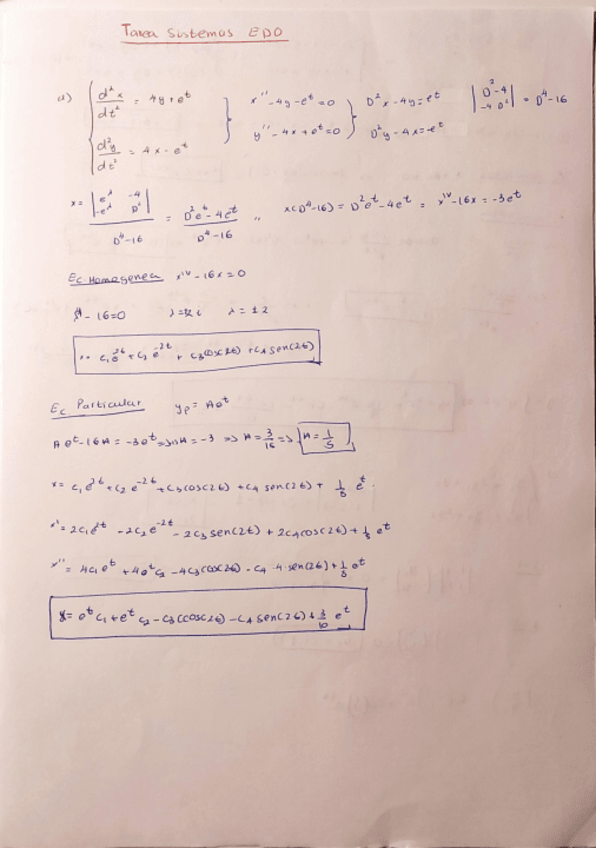 Tarea Sistemas EDO
a) { d²x/dt² = 4y + e^t } x'' - 4y - e^t = 0 } D²x - 4y = e^t |D² -4; -4 D²| = D⁴ - 16
d²y/dt² = 4x - e^t y'' - 4x + e^t = 0 D²y - 4x = -e^t
x = |e^t -4; -e^t D²| / D⁴-16 = D²e^t - 4e^t / D⁴-16 ,, x(D⁴-16) = D²e^t - 4e^t = x^IV - 16x = -3e^t
Ec. Homogenea x^IV - 16x = 0
- 16 = 0 λ = ±2i λ = ±2
c₁e^2t + c₂e^-2t + c₃cos(2t) + c₄sen(2t)
Ec Particular yp = Ae^t
Ae^t - 16A = -3e^t => => A = 1/5
x = c₁e^2t + c₂e^-2t + c₃cos(2t) + c₄ sen(2t) + 1/5 e^t.
x' = 2c₁e^2t - 2c₂e^-2t - 2c₃sen(2t) + 2c₄cos(2t) + 1/5 e^t
x'' = 4c₁e^t + 4e^t c₂ - 4c₃(cos(2t) - c₄ · 4 sen(2t) + 1/5 e^t
= e^t c₁ + e^t c₂ - c₃(cos(2t) - c₄ sen(2t) + e^t